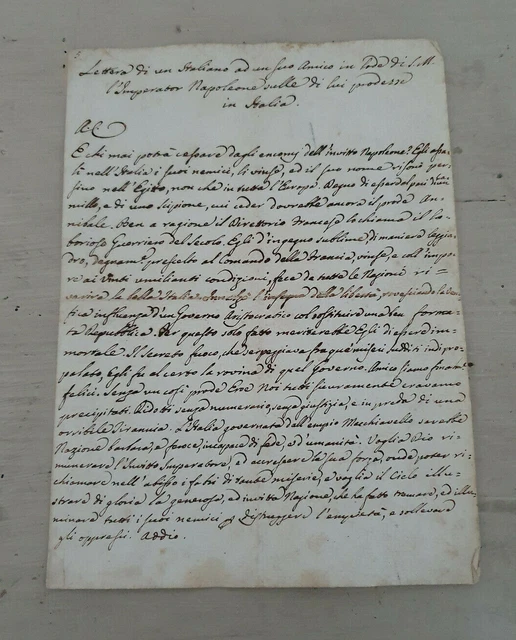 Lettera di un Italiano ad un suo Amico in lode di S. M.
l'Imperator Napoleone sulle di lui prodezze
in Italia.
A. C.
E chi mai potrà cessare dagli encomj dell'invitto Napoleone? Egli assa-
lì nell'Italia i suoi nemici, li vinse, ed il suo nome risonò per-
fino nell'Egitto, non che in tutta l'Europa. Degno di
e di uno Scipione, cui ceder dovrebbe ancora il prode An-
nibale. Ben a ragione il Direttorio Francese lo chiama il la-
borioso Guerriero del Secolo. Egli d'ingegno sublime, di maniere leggia-
dre, degnam.e prescelto al comando della Francia, vinse, e coll'impor-
re ai Vinti umilianti condizioni, fece da tutte le Nazioni ri-
verire la bella Italia l'insegna della libertà,
influenza d'un Governo Aristocratico col sostituire una ben forma-
ta Repubblica. Per questo solo fatto meriterebbe Egli di essere im-
mortale. Il secreto fuoco, che serpeggiava fra que' miseri sudditi
Egli fu al certo la rovina di quel Governo. Amico siamo finalm.e
felici. Senza un così prode Eroe Noi tutti sicuramente eravamo
precipitati. Ridotti senza numerario, senza giustizia, e in preda di una
orribile Tirannia. L'Italia governata dall'empio Macchiavello sarebbe
Nazione barbara, e feroce, incapace di fede, ed umanità. Voglia Dio ri-
munerare l'Invitto Imperatore, ed accrescere la sua forza, onde poter ri-
chiamare nell'abisso i fabri di tante miserie, e voglia il Cielo illu-
strare di gloria la generosa, ed invitta Nazione, che ha fatto tremare, ed
tutti i suoi nemici p. distruggere l'empietà, e sollevare
gli oppressi. Addio.